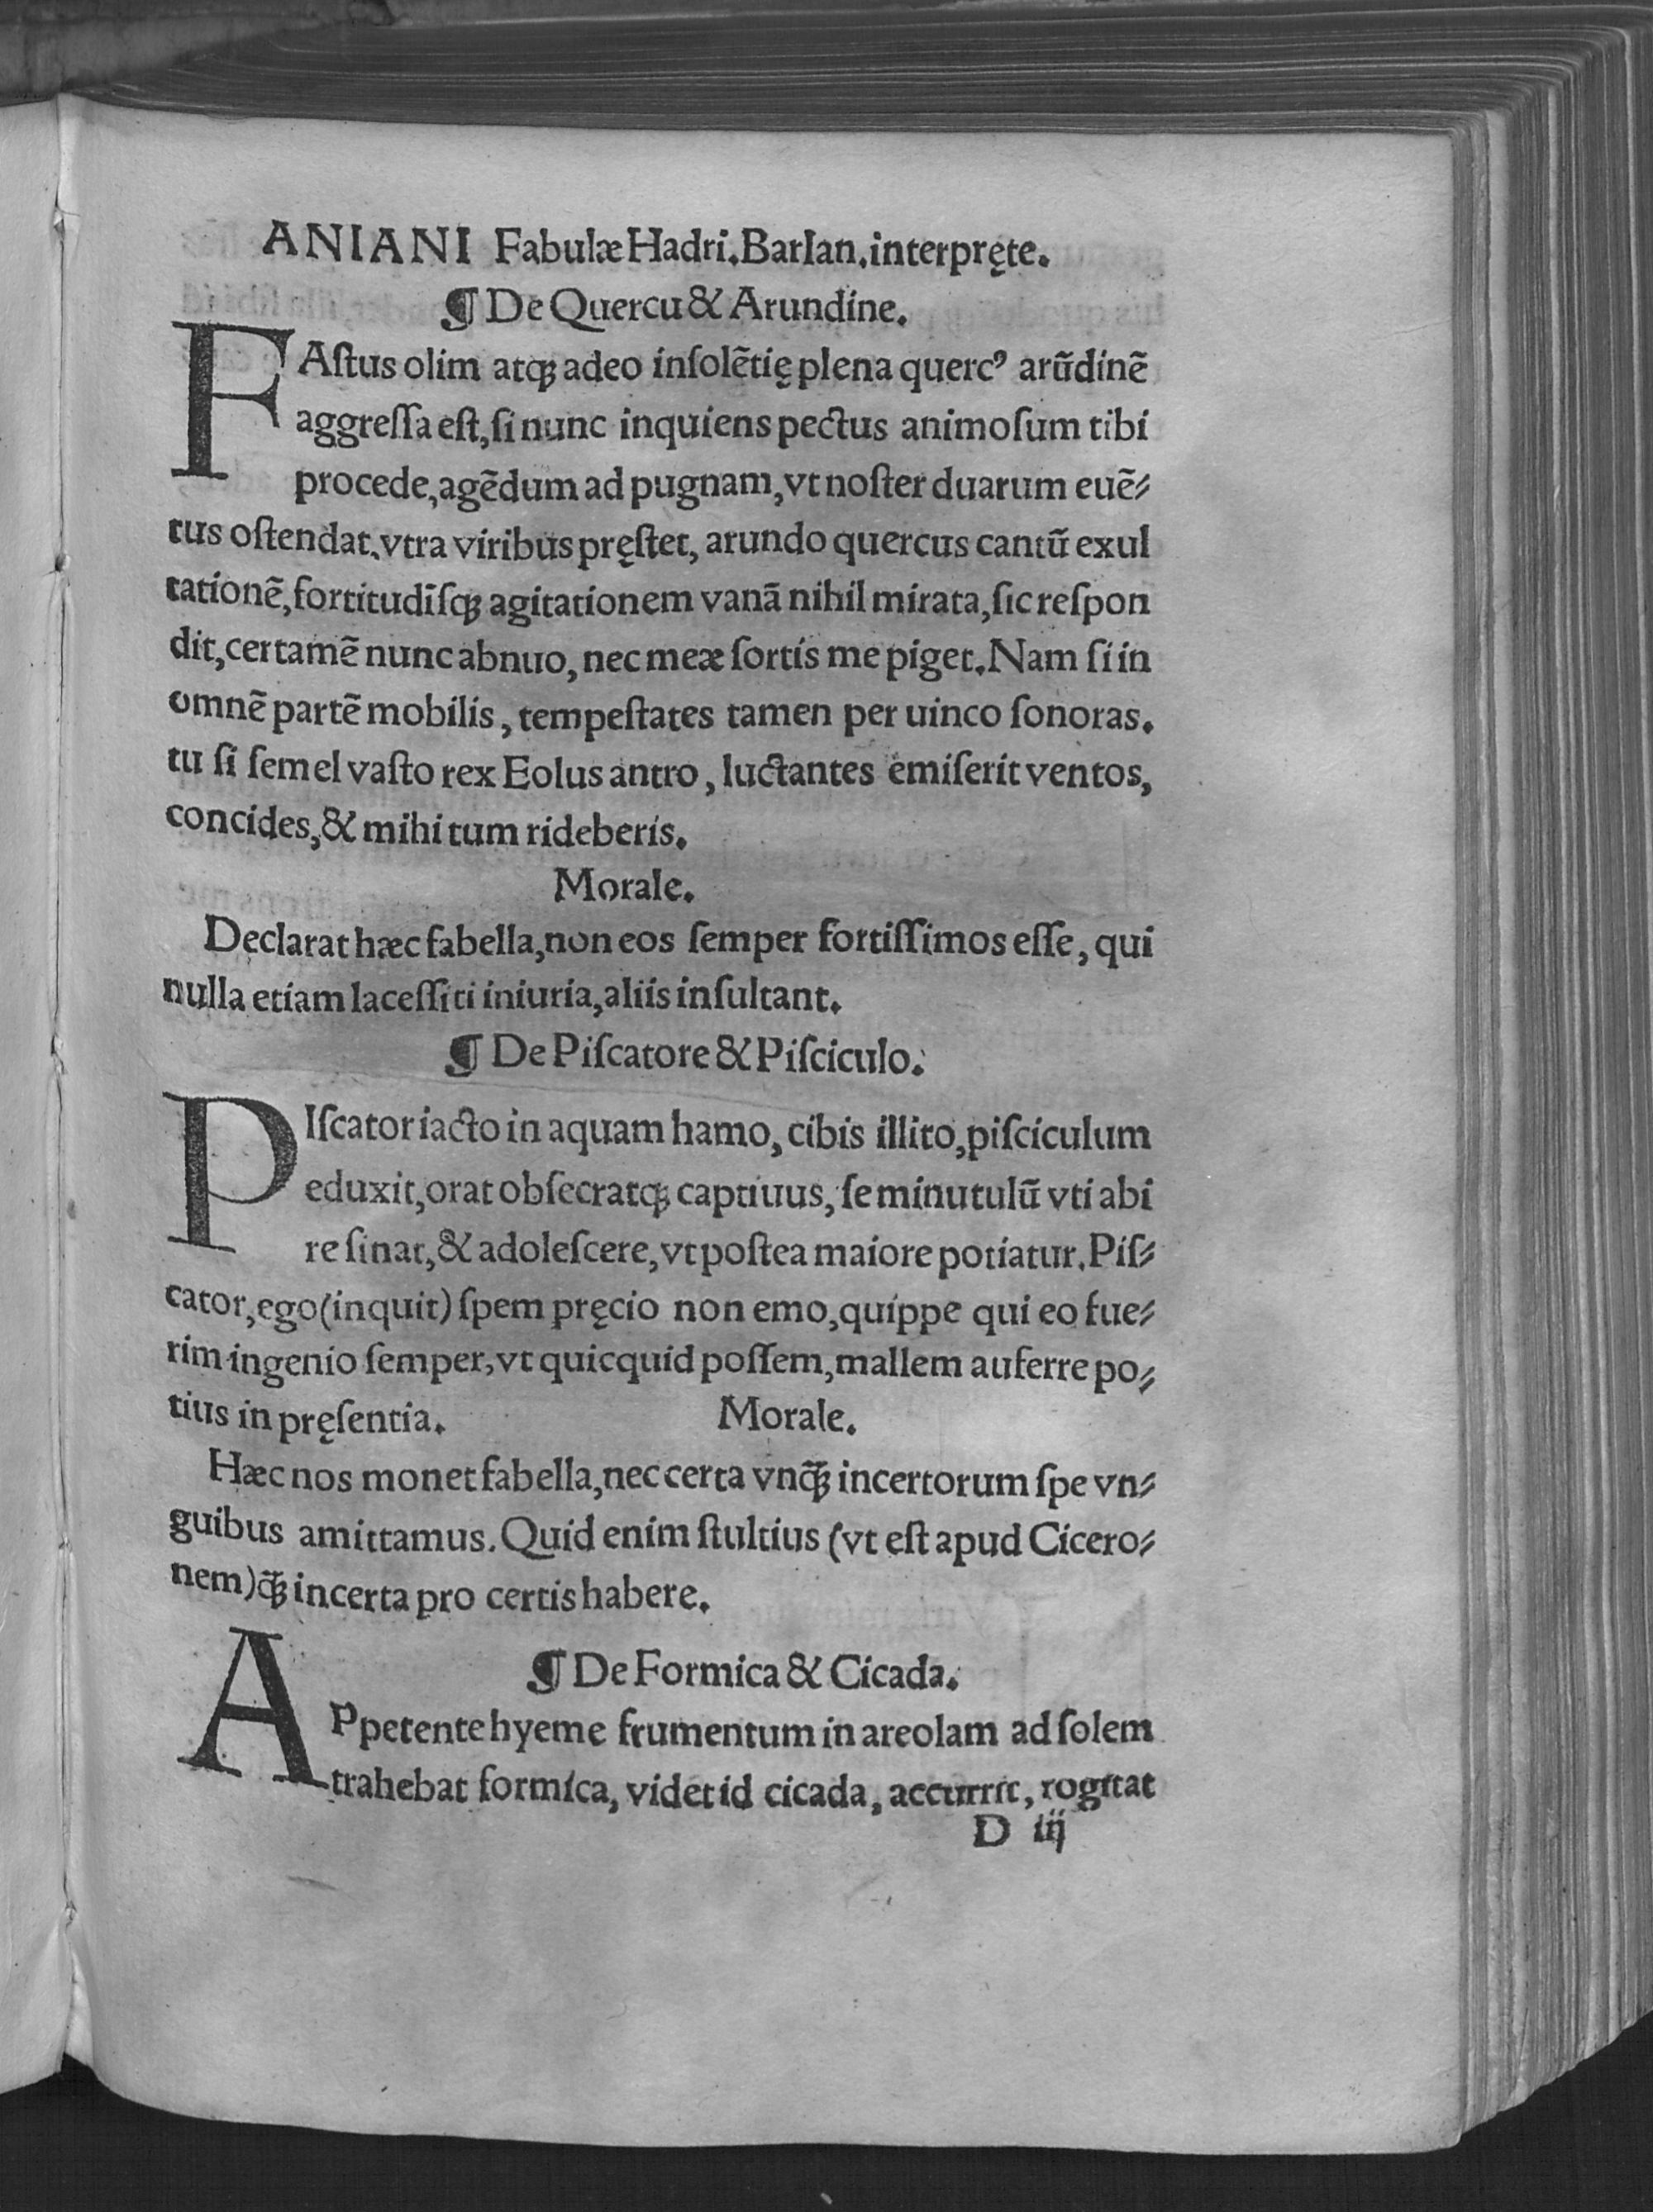 ANIANI Fabulæ Hadri. Barlan. interpręte.
¶ De Quercu & Arundine.
FAſtus olim atqꝫ adeo inſolẽtię plena quercꝰ arũdinẽ
aggreſſa eſt, ſi nunc inquiens pectus animoſum tibi
procede, agẽdum ad pugnam, vt noſter duarum euẽ⸗
tus oſtendat, vtra viribus pręſtet, arundo quercus cantũ exul
tationẽ, fortitudĩſqꝫ agitationem vanã nihil mirata, ſic reſpon
dit, certamẽ nunc abnuo, nec meæ ſortis me piget. Nam ſi in
omnẽ partẽ mobilis, tempeſtates tamen per uinco ſonoras.
tu ſi ſemel vaſto rex Eolus antro, luctantes emiſerit ventos,
concides, & mihi tum rideberis.
Morale.
Dęclarat hæc fabella, non eos ſemper fortiſſimos eſſe, qui
nulla etiam laceſſiti iniuria, aliis inſultant.
¶ De Piſcatore & Piſciculo.
PIſcator iacto in aquam hamo, cibis illito, piſciculum
eduxit, orat obſecratqꝫ captiuus, ſe minutulũ vti abi
re ſinat, & adoleſcere, vt poſtea maiore potiatur. Piſ⸗
cator, ego (inquit) ſpem pręcio non emo, quippe qui eo fue⸗
rim ingenio ſemper, vt quicquid poſſem, mallem auferre po⸗
tius in pręſentia. Morale.
Hæc nos monet fabella, nec certa vnq̃ꝫ incertorum ſpe vn⸗
guibus amittamus. Quid enim ſtultius (vt eſt apud Cicero⸗
nem) q̃ꝫ incerta pro certis habere.
¶ De Formica & Cicada.
APpetente hyeme frumentum in areolam ad ſolem
trahebat formica, videt id cicada, accurrit, rogitat
D iij